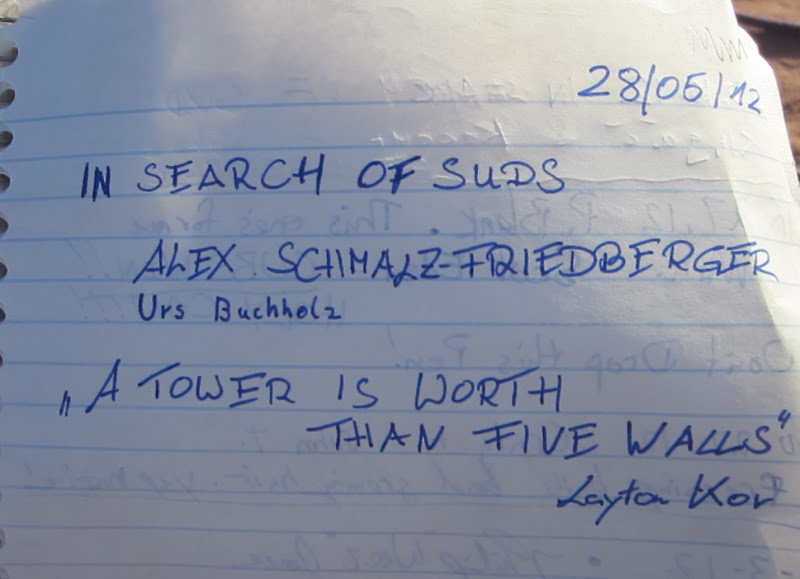 28/05/12
IN SEARCH OF SUDS
ALEX SCHMALZ-FRIEDBERGER
Urs Buchholz
„A TOWER IS WORTH
THAN FIVE WALLS“
Layton Kor